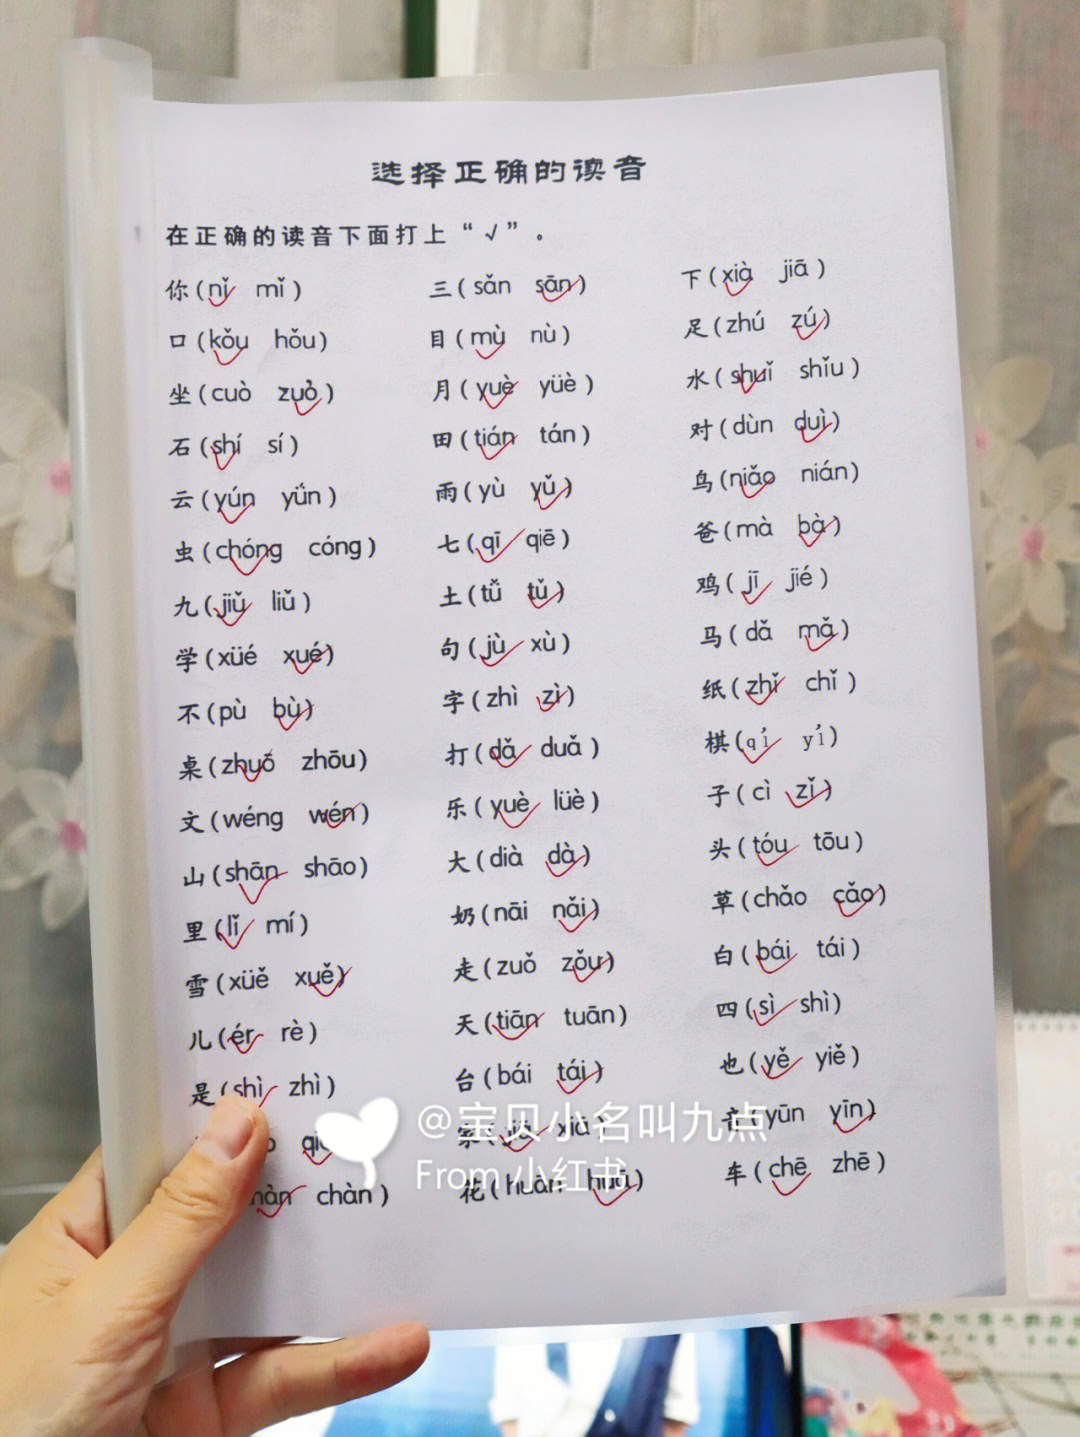 选择正确的读音
在正确的读音下面打上“√”。
你(nǐ mǐ) 三(sǎn sān) 下(xià jiā)
口(kǒu hǒu) 目(mù nù) 足(zhú zú)
坐(cuò zuò) 月(yuè yüè) 水(shuǐ shǐu)
石(shí sí) 田(tián tán) 对(dùn duì)
云(yún yǘn) 雨(yù yǔ) 鸟(niǎo nián)
虫(chóng cóng) 七(qī qiē) 爸(mà bà)
九(jiǔ liǔ) 土(tǚ tǔ) 鸡(jī jié)
学(xüé xué) 句(jù xù) 马(dǎ mǎ)
不(pù bù) 字(zhì zì) 纸(zhǐ chǐ)
桌(zhuō zhōu) 打(dǎ duǎ) 棋(qí yí)
文(wéng wén) 乐(yuè lüè) 子(cì zǐ)
山(shān shāo) 大(dià dà) 头(tóu tōu)
里(lǐ mí) 奶(nāi nǎi) 草(chǎo cǎo)
雪(xüě xuě) 走(zuǒ zǒu) 白(bái tái)
儿(ér rè) 天(tiān tuān) 四(sì shì)
是(shì zhì) 台(bái tái) 也(yě yiě)
家( xià) 音(yūn yīn)
chàn) 花(huān huā) 车(chē zhē)
@宝贝小名叫九点
From 小红书